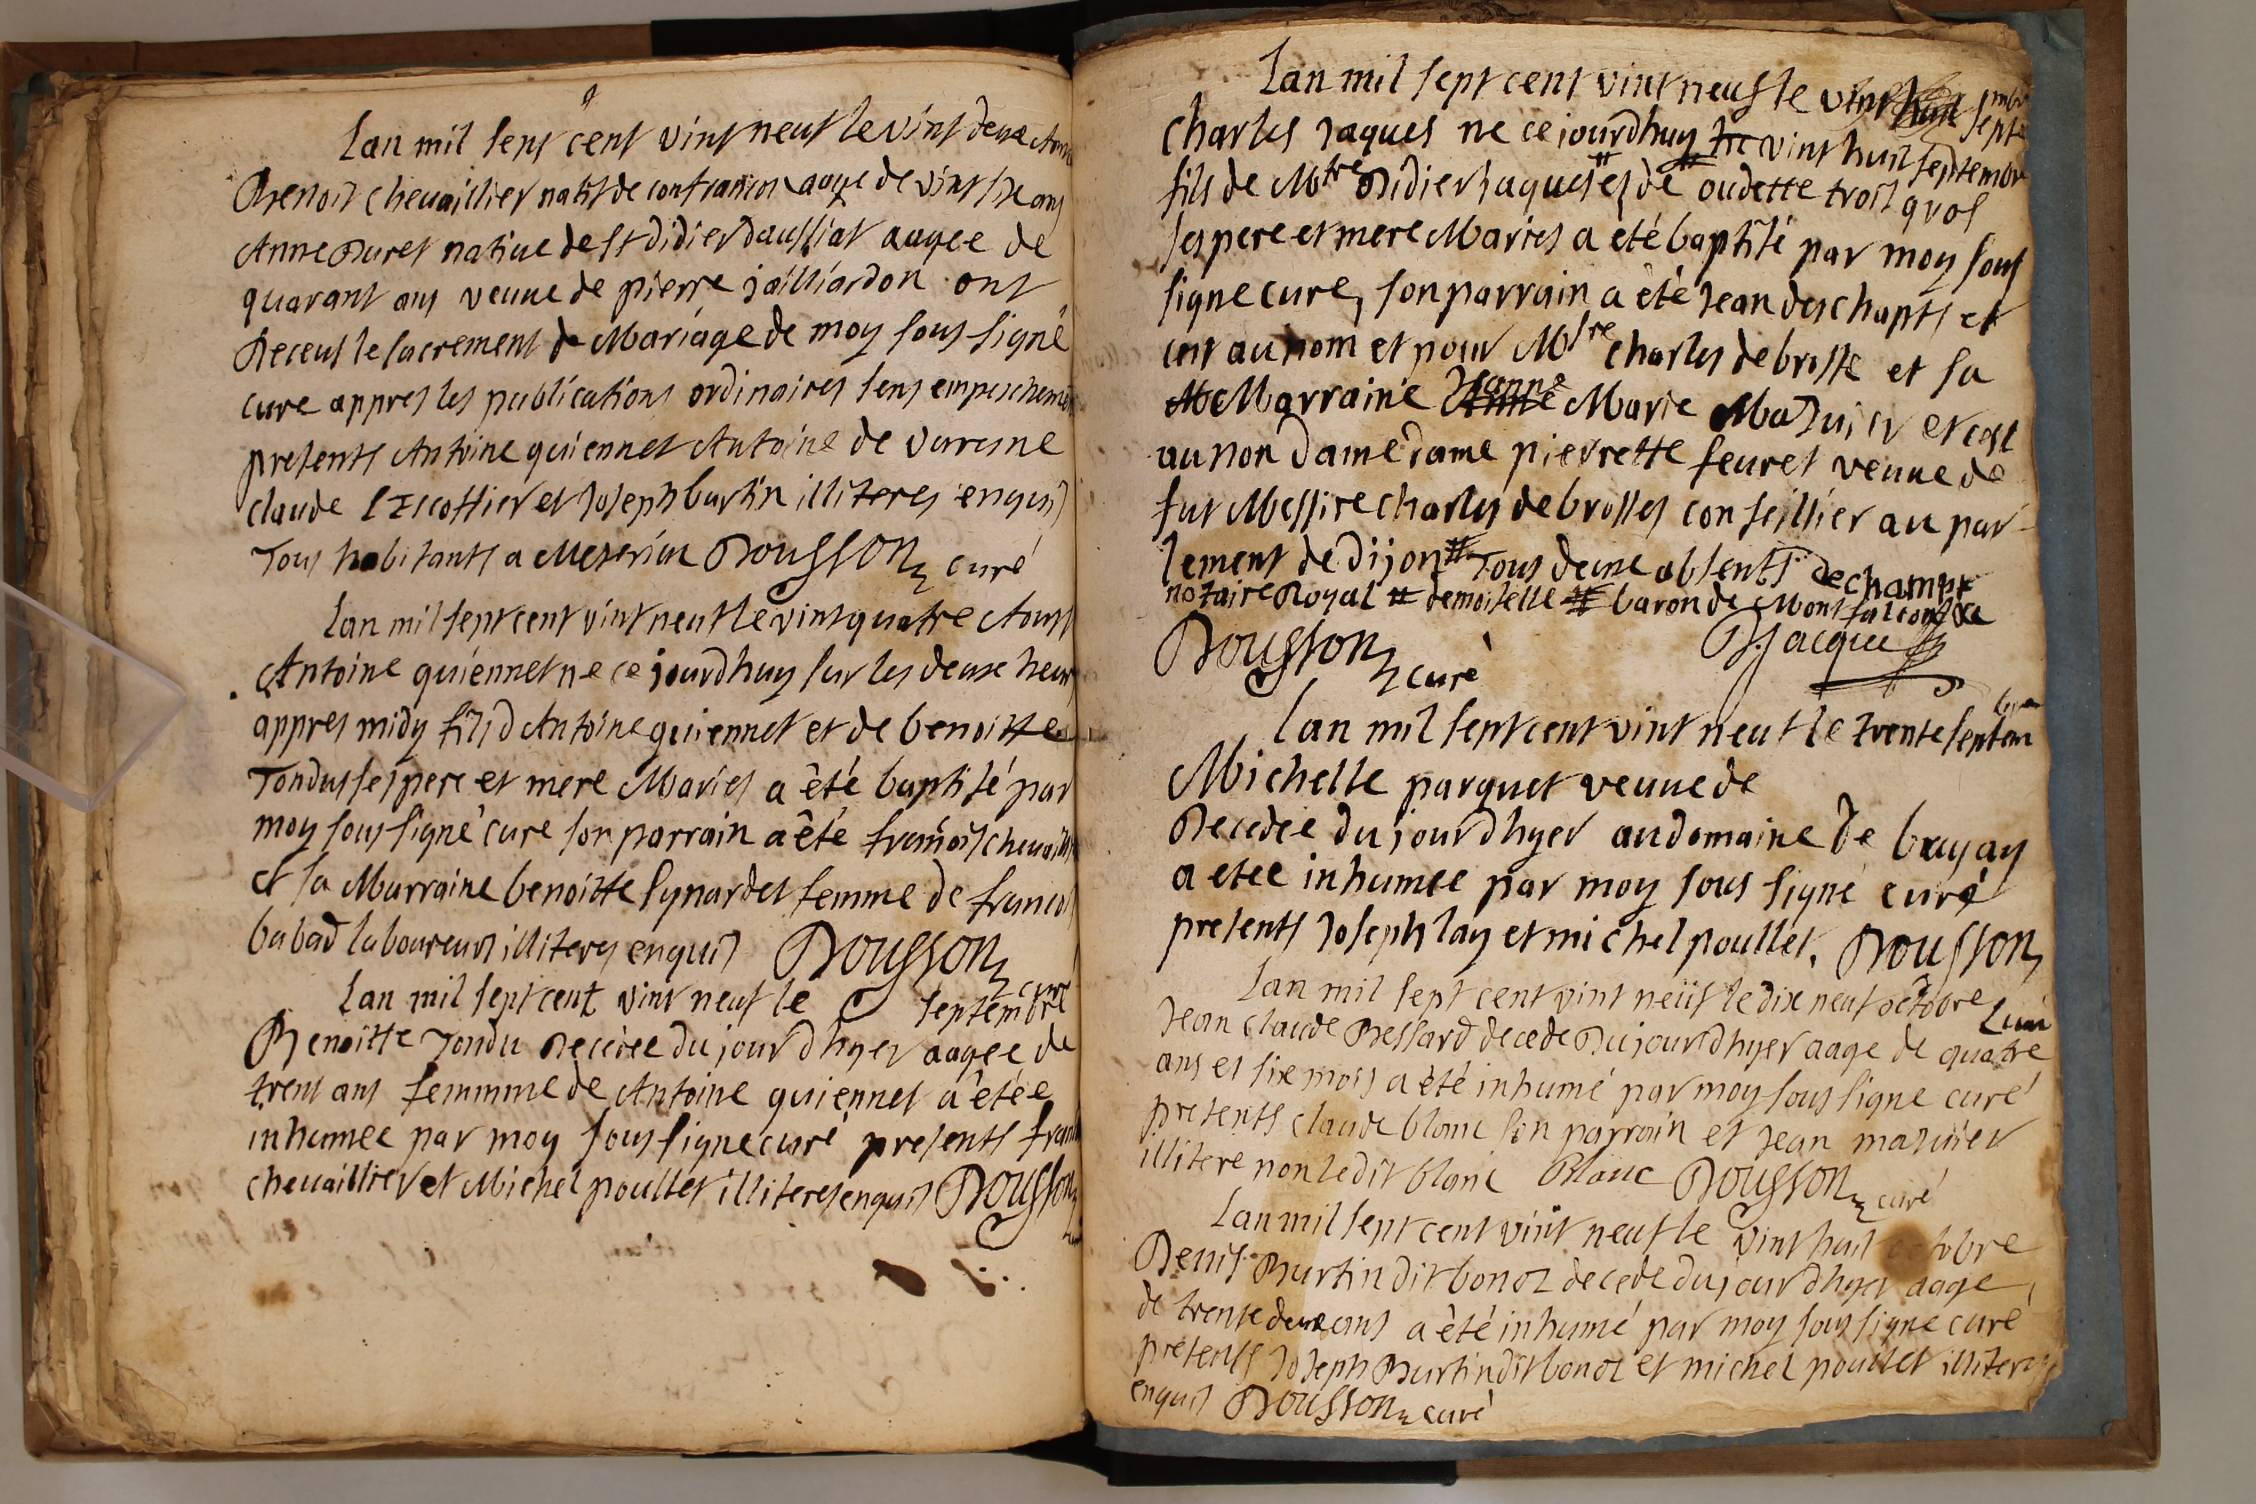 Lan mil sept cent vint neuf le vint deux Aou
Benoit chevaillier natif de confrancon aagé de vint six ans
Anne Duret native de st didier daussiat aagee de
quarant ans veuve de pierre jailliardon ont
Receus le sacrement de Mariage de moy sous signé
curé appres les publications ordinaires sens empeschemen
presents Antoine quiennet Antoine de varesne
claude l'Escottier et Joseph burtin illiteres enquis
Tous habitants a Mezeria Dousson curé
Lan mil sept cent vint neuf le vint quatre Aoust
Antoine quiennet ne ce jourdhuy sur les deux heur
appres midy fils d Antoine quiennet et de benoitte
Tondus ses pere et mere Mariés a êté baptisé par
moy sous signé curé son parrain a êté francois chevaill
et sa Marraine benoitte Synardet femme de francoi
babad laboureurs illiteres enquis Dousson curé
Lan mil sept cent vint neuf le septembre
Benoitte Tondu Decedee du jour d hyer aagee de
trent ans femmme de Antoine quiennet a êtée
inhumee par moy sous signe curé presents fran
chevaillier et Michel poullet illiteres enquis Dousson
Lan mil sept cent vint neuf le vint huit septembre
Charles Jaques ne ce jourdhuy vint huit septembre
fils de Mtre Didier Jaques et de # oudette trois gros
ses pere et mere Mariés a êté baptisé par moy sous
signe curé, son parrain a êté Jean deschamps et
cest au nom et pour Msre Charles de brosse et sa
Marraine Jeanne Marie Maduier et cest
au non dame dame pierrette feuret veuve de
fut Messire charles de brosses conseillier au par-
lement de dijon # Tous deux absents dechamps
notaire Royal # demoiselle # baron de Montfalcon &a
Dousson curé D. Jacque
Lan mil sept cent vint neuf le trente septembre
Michelle parquet veuve de
Decedee du jourdhyer au domaine de bruyay
a etee inhumee par moy sous signé curé
presents Joseph lay et michel poullet. Dousson
Lan mil sept cent vint neüf le dix neuf octobre
Jean claude Bessard decede Du jourdhyer aage de quatre
ans et six mois a êté inhumé par moy sous signe curé
presents claude blanc son parrain et Jean maduier
illitere non ledit blanc Blanc Dousson curé
Lan mil sept cent vint neuf le vint huit octobre
Denis Burtin dit bonoz decede du jourdhyer aage
de trente deux ans a êté inhumé par moy sous signe curé
presents Joseph Burtin dit bonoz et michel poullet illiteres
enquis Dousson curé